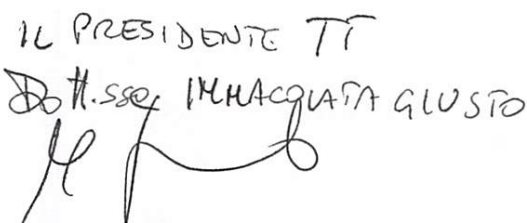 IL PRESIDENTE TT
Dott.ssa IMMACOLATA GIUSTO